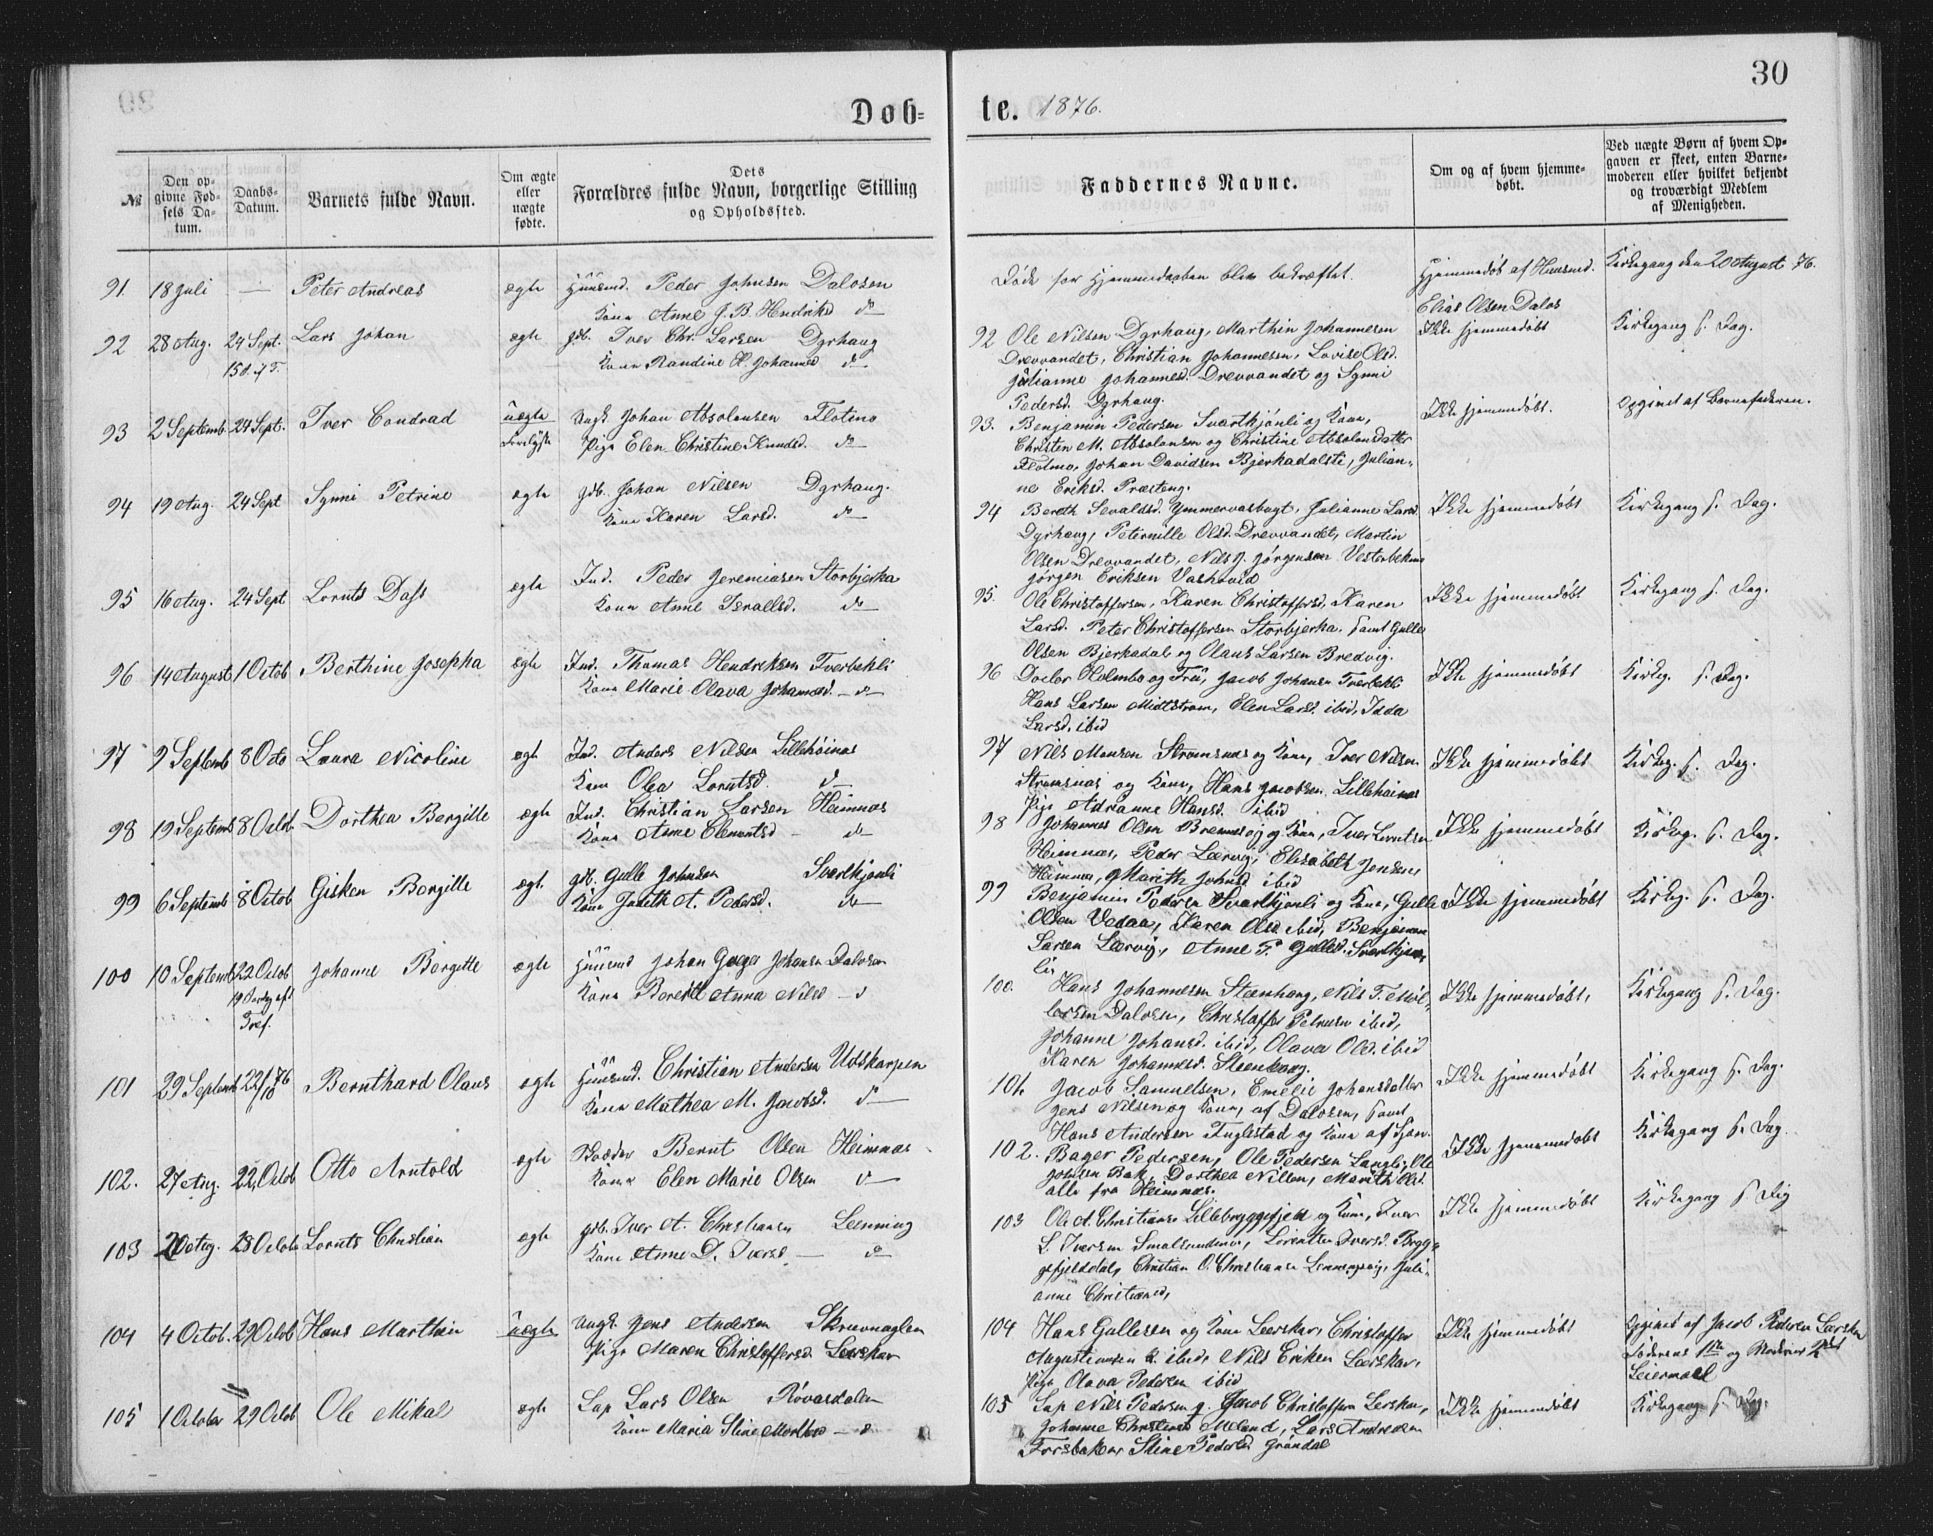 30
Døb-
te. 1876.
№
Den opgivne Fødsels Datum.
Daabs-Datum.
Barnets fulde Navn.
Om ægte eller uægte fødte.
Dets Forældres fulde Navn, borgerlige Stilling og Opholdssted.
Faddernes Navne.
Om og af hvem hjemmedøbt.
Ved uægte Børn af hvem Opgaven er skeet, enten Barnemoderen eller hvilket bekjendt og troværdigt Medlem af Menigheden.
91. 18 Juli — Peter Andreas ægte Huusmd. Peder Johnsen Dalosen
Kone Anne J. B. Hendriksd do
Døde før Hjemmedaaben blev bekræftet.
Hjemmedøbt af Huusmd.
Elias Olsen Dalos
Kirkegang den 20 August 76.
92 28 Aug. 24 Sept. Lars Johan ægte gdb. Iver Chr. Larsen Dyrhaug
15 S. e. T. Kone Randine H. Johannesd do
92 Ole Nilsen Dyrhaug, Marthin Johannesen
Drevvandet, Christian Johannesen, Lovise Olsd.
Julianne Johannesd. Drevvandet og Synni
Pedersd. Dyrhaug.
Ikke hjemmedøbt
Kirkegang s. Dag.
93 2 Septemb. 24 Sept. Iver Condrad uægte Ungk. Johan Absolonsen Flotmo
Pige Elen Christine Knudsd. do
93. Benjamin Pedersen Svartkjønli og Kone,
Christen M. Absolonsen og Christine Absolonsdatter
Flotmo, Johan Davidsen Bjerkadalsli, Julian-
ne Eriksd. Præsteng.
Ikke hjemmedøbt.
Opgivet af Barnefaderen.
94 19 Aug. 24 Sept Synni Petrine ægte gdb. Johan Nilsen Dyrhaug.
Kone Karen Larsd. do
94 Bereth Sevaldsd. Ymmervasbugt, Julianne Larsd.
Dyrhaug, Peternille Olsd. Drevvandet, Martin
Olsen Drevvandet, Nils J. Jørgensen Vesterbekmo
Jørgen Eriksen Vashvid
Ikke hjemmedøbt
Kirkegang s. Dag.
95 16 Aug. 24 Sept Loruts Dass ægte Ind. Peder Jeremiasen Storbjerka
Kone Anne Israelsd. do
95. Ole Christoffersen, Karen Christoffersd, Karen
Larsd. Peter Christoffersen Storbjerka. samt Gulle
Olsen Bjerkadal og Olaus Larsen Bredvig.
Ikke hjemmedøbt
Kirkegang s. Dag.
96 14 August 1 Octob Berthine Josepha ægte Ind. Thomas Hendriksen Tverbekli
Kone Marie Olava Johansd. do
96 Doctor Holmbo og Frue, Jacob Johansen Tverbekli
Hans Larsen Midtstrøm, Elen Larsd. ibid, Inda
Larsd. ibid
Ikke hjemmedøbt
Kirkeg. s. Dag.
97 9 Septemb 8 Octo Laura Nicoline ægte Ind. Anders Nilsen Lillehøinæs
Kone Olea Lorntsd. do
97 Nils Monsen Strømsnæs og Kone, Iver Nilsen
Strømsnæs og Kone, Hans Jacobsen Lillehøinæs
Pige Adrianne Hansd. ibid
Ikke hjemmedøbt
Kirkeg. s. Dag.
98 19 Septemb 8 Octob Dorthea Bergitte ægte Ind. Christian Larsen Heimnæs
Kone Anne Clemetsd do
98 Johannes Olsen Bremnes og Kone, Iver Lorntsen
Heimnæs, Peder Lærvig, Elisabeth Jensen
Heimnæs, Marith Johnsd ibid
Ikke hjemmedøbt
Kirkeg. s. Dag.
99 6 Septemb 8 Octob Gisken Bergitte ægt. gdb. Gulle Johnsen Svartkjønli
Kone Judith A. Pedersd. do
99 Benjamin Pedersen Svartkjønli og Kone, Gulle
Olsen Vedaa, Karen Olsd. ibid, Benjamin
Larsen Lærvig, Anne P. Gullesd. Svartkjøn-
li
Ikke hjemmedøbt
Kirkeg. s. Dag.
100 10 Septemb 22 Octob Johanne Bergitte ægte Huusmd Johan Johansen Dalosen
Kone Bereth Anna Nilsd do
100. Hans Johannesen Steenhaug, Nils T.
Dalosen, Christoffer Petersen ibid,
Johanne Johansd. ibid, Olava Olsd. ibid
Karen Johannesd. Steenhaug.
Ikke hjemmedøbt,
Kirkegang s. Dag.
101 29 Septemb 22/10 76 Bernthard Olaus ægte Huusmd. Christian Andersen Udskarpen
Kone Mathea M. Jacobsd. do
101. Jacob Samuelsen, Emelie Johansdatter
Jens Nilsen og Kone, af Dalosen, samt
Hans Andersen Fuglestad og Kone af
Ikke hjemmedøbt
Kirkegang s. Dag.
102. 27 Aug. 22 Octob Otto Arntold ægte Bernt Olsen Heimnæs
Kone Elen Marie Olsen do
102. Bager Pedersen, Ole Pedersen Langli, Ole
Johnsen Bak, Dorthea Nilsen, Marith Olsd.
alle fra Heimnæs.
Ikke hjemmedøbt
Kirkegang s. Dag.
103 20 Aug. 28 Octob Loruts Christian ægte gdb. Iver A. Christiansen Lenning
Kone Anne D. Iversd. do
103 Ole A. Christiansen Lillebryggefjeld og Kone, Iver
L. Iversen Smalsundmo, Lorentse Iversd. Brygg-
efjelddal, Christian O. Christiansen Lenningsvig, Juli-
anne Christiansd,
Ikke hjemmedøbt
Kirkegang s. Dag
104 4 Octob. 29 Octob Hans Marthin uægte Ungk. Jens Andersen Skravnaglen
Pige Maren Christoffersd Leerskar
104 Hans Gullesen og Kone Leerskar, Christoffer
Augustinusen ibid, Nils Eriksen Leerskar,
Pige Olava Pedersen ibid
Ikke hjemmedøbt
Opgivet af Jacob Pedersen Lærskar
Faderens 1ste og Moderens 2det
Leiermaal
105 1 October 29 Octob Ole Mikal ægte Lap Lars Olsen Røvasdalen
Kone Maria Stine Mortensd do
105 Lap Nils Pedersen g. Jacob Christoffersen Lerskar,
Johanne Christensd Meland, Lars Andersen
Forsbakken Stine Pedersd Grøndal
Ikke hjemmedøbt
Kirkegang s. Dag.